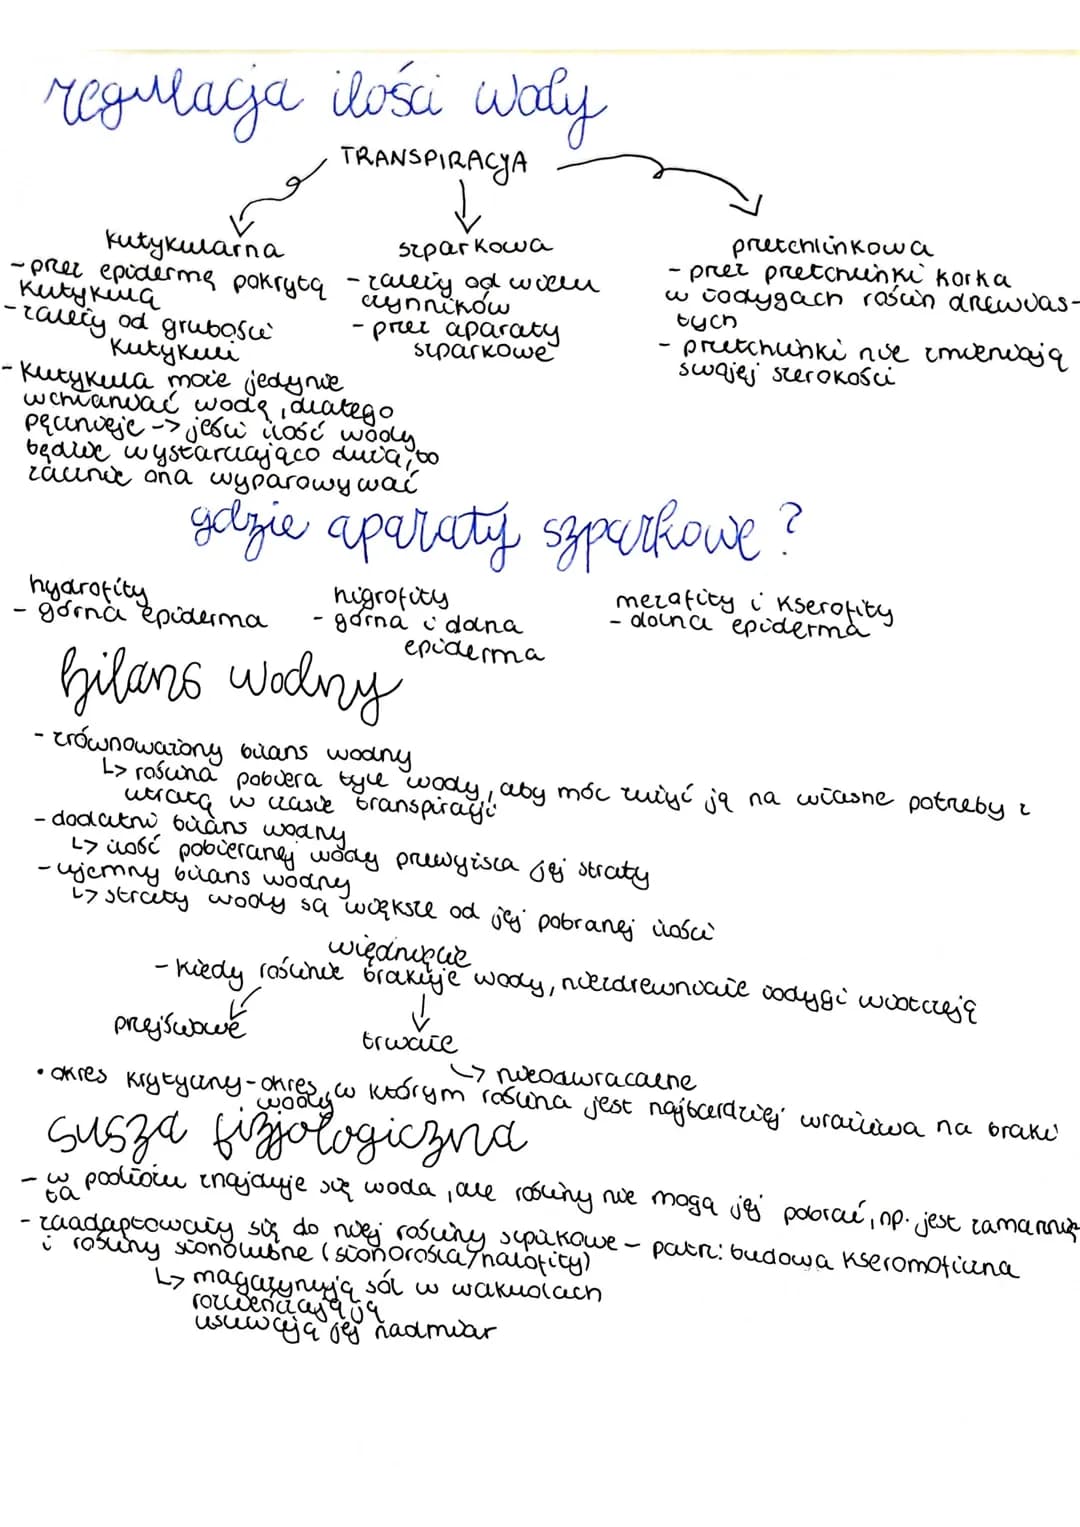 regulacja ilości wody
TRANSPIRACJA
kutykularna
- przez epidermę pokrytą
kutykulą
- zależy od grubości
kutykuli
- kutykula może jedynie
wchłaniać wodę, dlatego
pęcznieje -> jeśli ilość wody
będzie wystarczająco duża, to
zacznie ona wyparowywać
szparkowa
- zależy od wielu
czynników
- przez aparaty
szparkowe
przetchlinkowa
- przez przetchlinki korka
w łodygach roślin drzewias-
tych
- przetchlinki nie zmieniają
swojej szerokości
gdzie aparaty szparkowe?
hydrofity
- górna epiderma
higrofity
- górna i dolna
epiderma
mezofity i kserofity
- dolna epiderma
bilans wodny
- zrównoważony bilans wodny
↳ roślina pobiera tyle wody, aby móc zużyć ją na własne potrzeby z
utratą w czasie transpiracji
- dodatni bilans wodny
↳ ilość pobieranej wody przewyższa jej straty
- ujemny bilans wodny
↳ straty wody są większe od jej pobranej ilości
więdnięcie
- kiedy roślinie brakuje wody, niezdrewniałe łodygi wiotczeją
przejściowe
trwałe
↳ nieodwracalne
• okres krytyczny - okres, w którym roślina jest najbardziej wrażliwa na braki
wody
susza fizjologiczna
- w podłożu znajduje się woda, ale rośliny nie mogą jej pobrać, np. jest zamarznię
ta
- zaadaptowały się do niej rośliny szpilkowe - patrz: budowa kseromoficzna
i rośliny słonolubne (słonorośla/halofity)
↳ magazynują sól w wakuolach
rozcieńczają ją
usuwają jej nadmiar